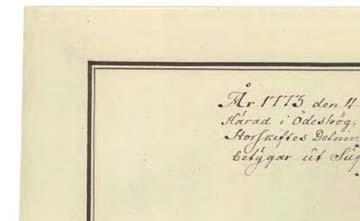 År 1773 den 4
Härad i Ödeshög,
Storskiftes Delnin
betÿgar ut Sÿg